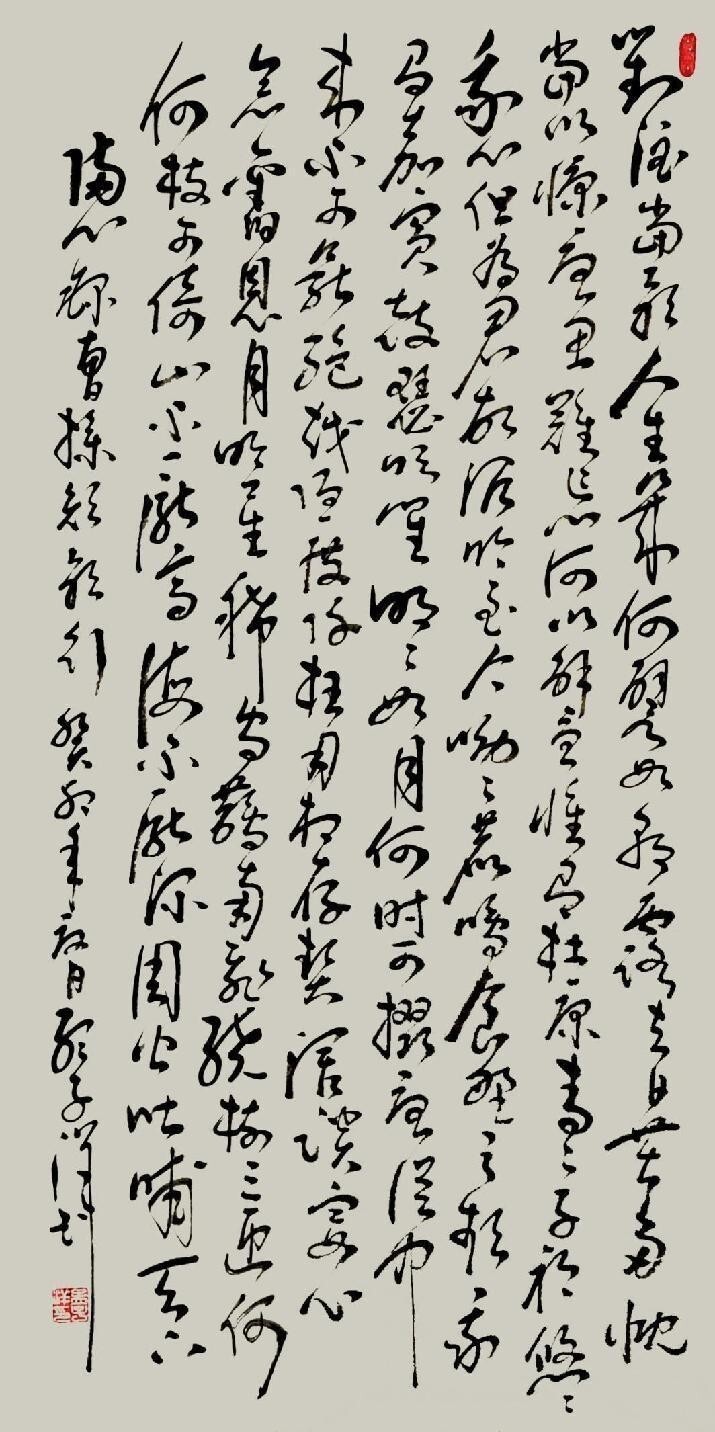 對酒當歌人生幾何譬如朝露去日苦多慨
當以慷憂思難忘何以解憂惟有杜康青々子衿悠々
我心但為君故沉吟至今呦々鹿鳴食野之蘋我
有嘉賓鼓瑟吹笙明々如月何时可掇憂從中
來不可斷絕越陌度阡枉用相存契闊談宴心
念舊恩月明星稀烏鵲南飛繞樹三匝何
何枝可倚山不厭高海不厭深周公吐哺天下
歸心錄曹操短歌行癸卯年秋月子洋书